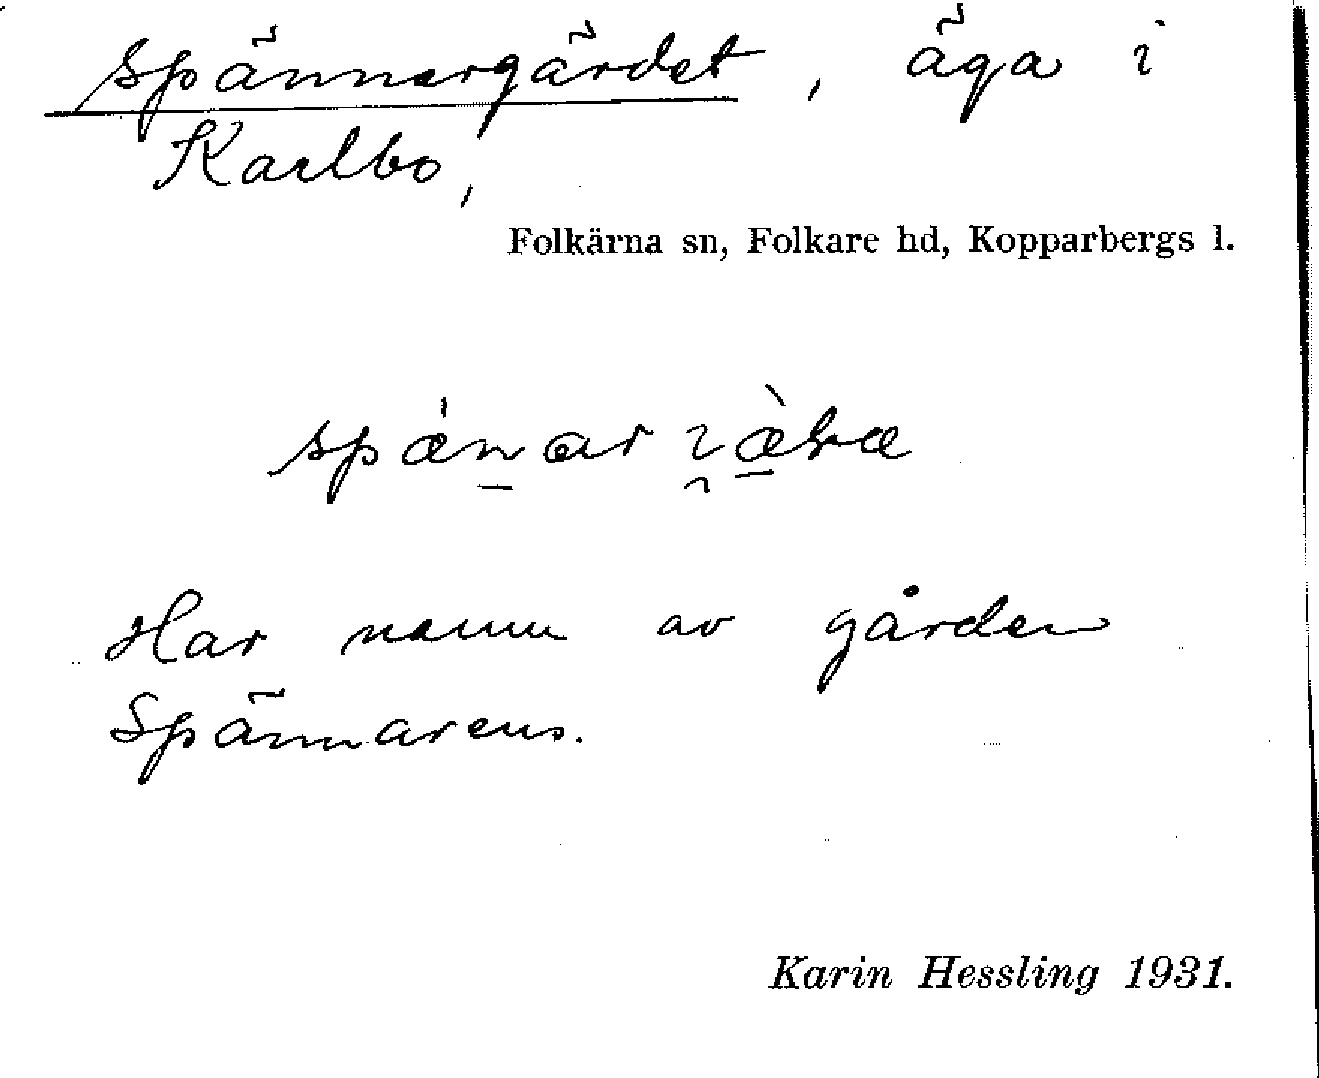 Spännargärdet, äga i
Karlbo,
Folkärna sn, Folkare hd, Kopparbergs l.
Har namn av gården
Spännarens.
Karin Hessling 1931.